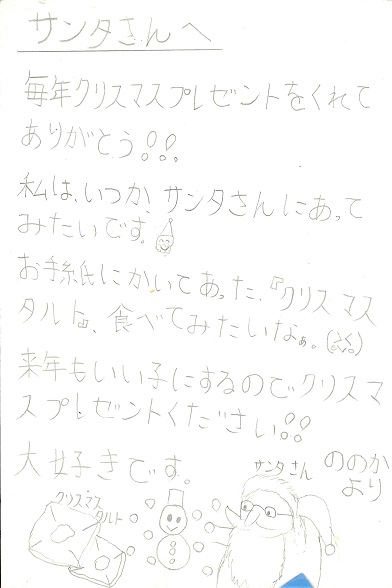 サンタさんへ
毎年クリスマスプレゼントをくれて
ありがとう!!
私は、いつか、サンタさんにあって
みたいです。
お手紙にかいてあった、『クリスマス
タルト』は、食べてみたいなぁ。
来年もいい子にするのでクリスマ
スプレゼントください!!
大好きです。
ののか
より
サンタさん
クリスマス
タルト